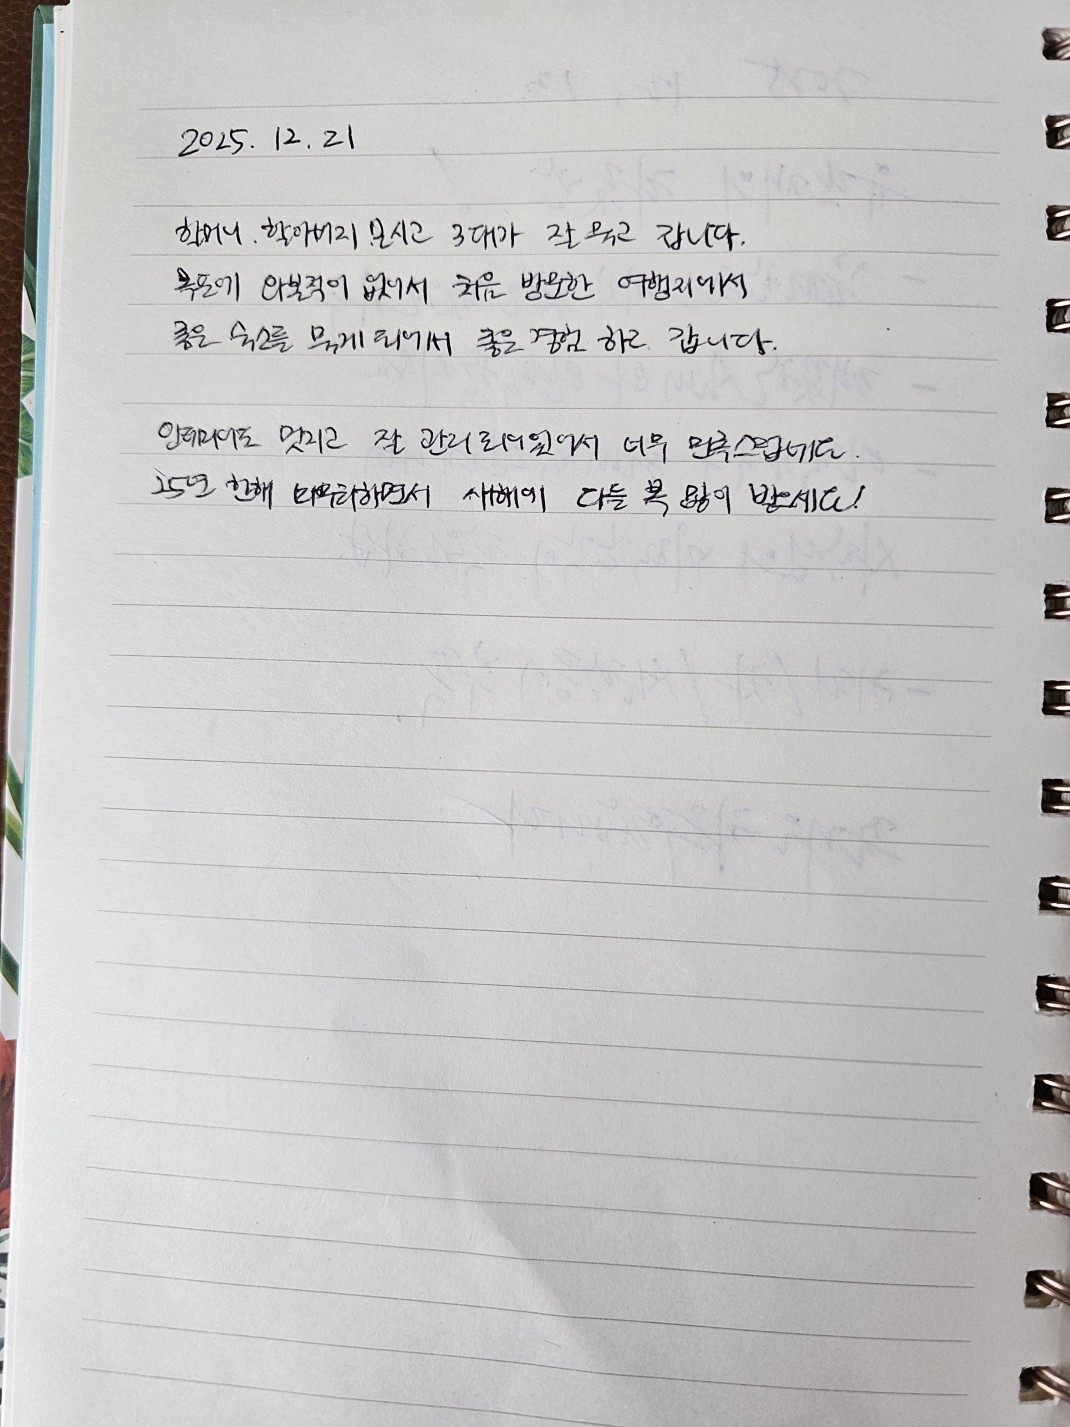 2025. 12. 21
할머니. 할아버지 모시고 3대가 잘 묵고 갑니다.
속초에 와본적이 없어서 처음 방문한 여행지에서
좋은 숙소를 묵게 되어서 좋은 경험 하고 갑니다.
인테리어도 멋지고 잘 관리 되어있어서 너무 만족스럽네요.
25년 한해 마무리하면서 새해에 다들 복 많이 받으세요!